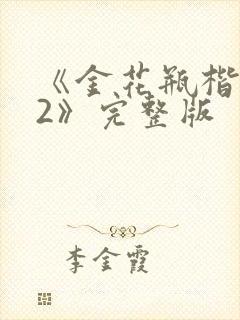 《金花瓶楷
2》完整版
李金霞